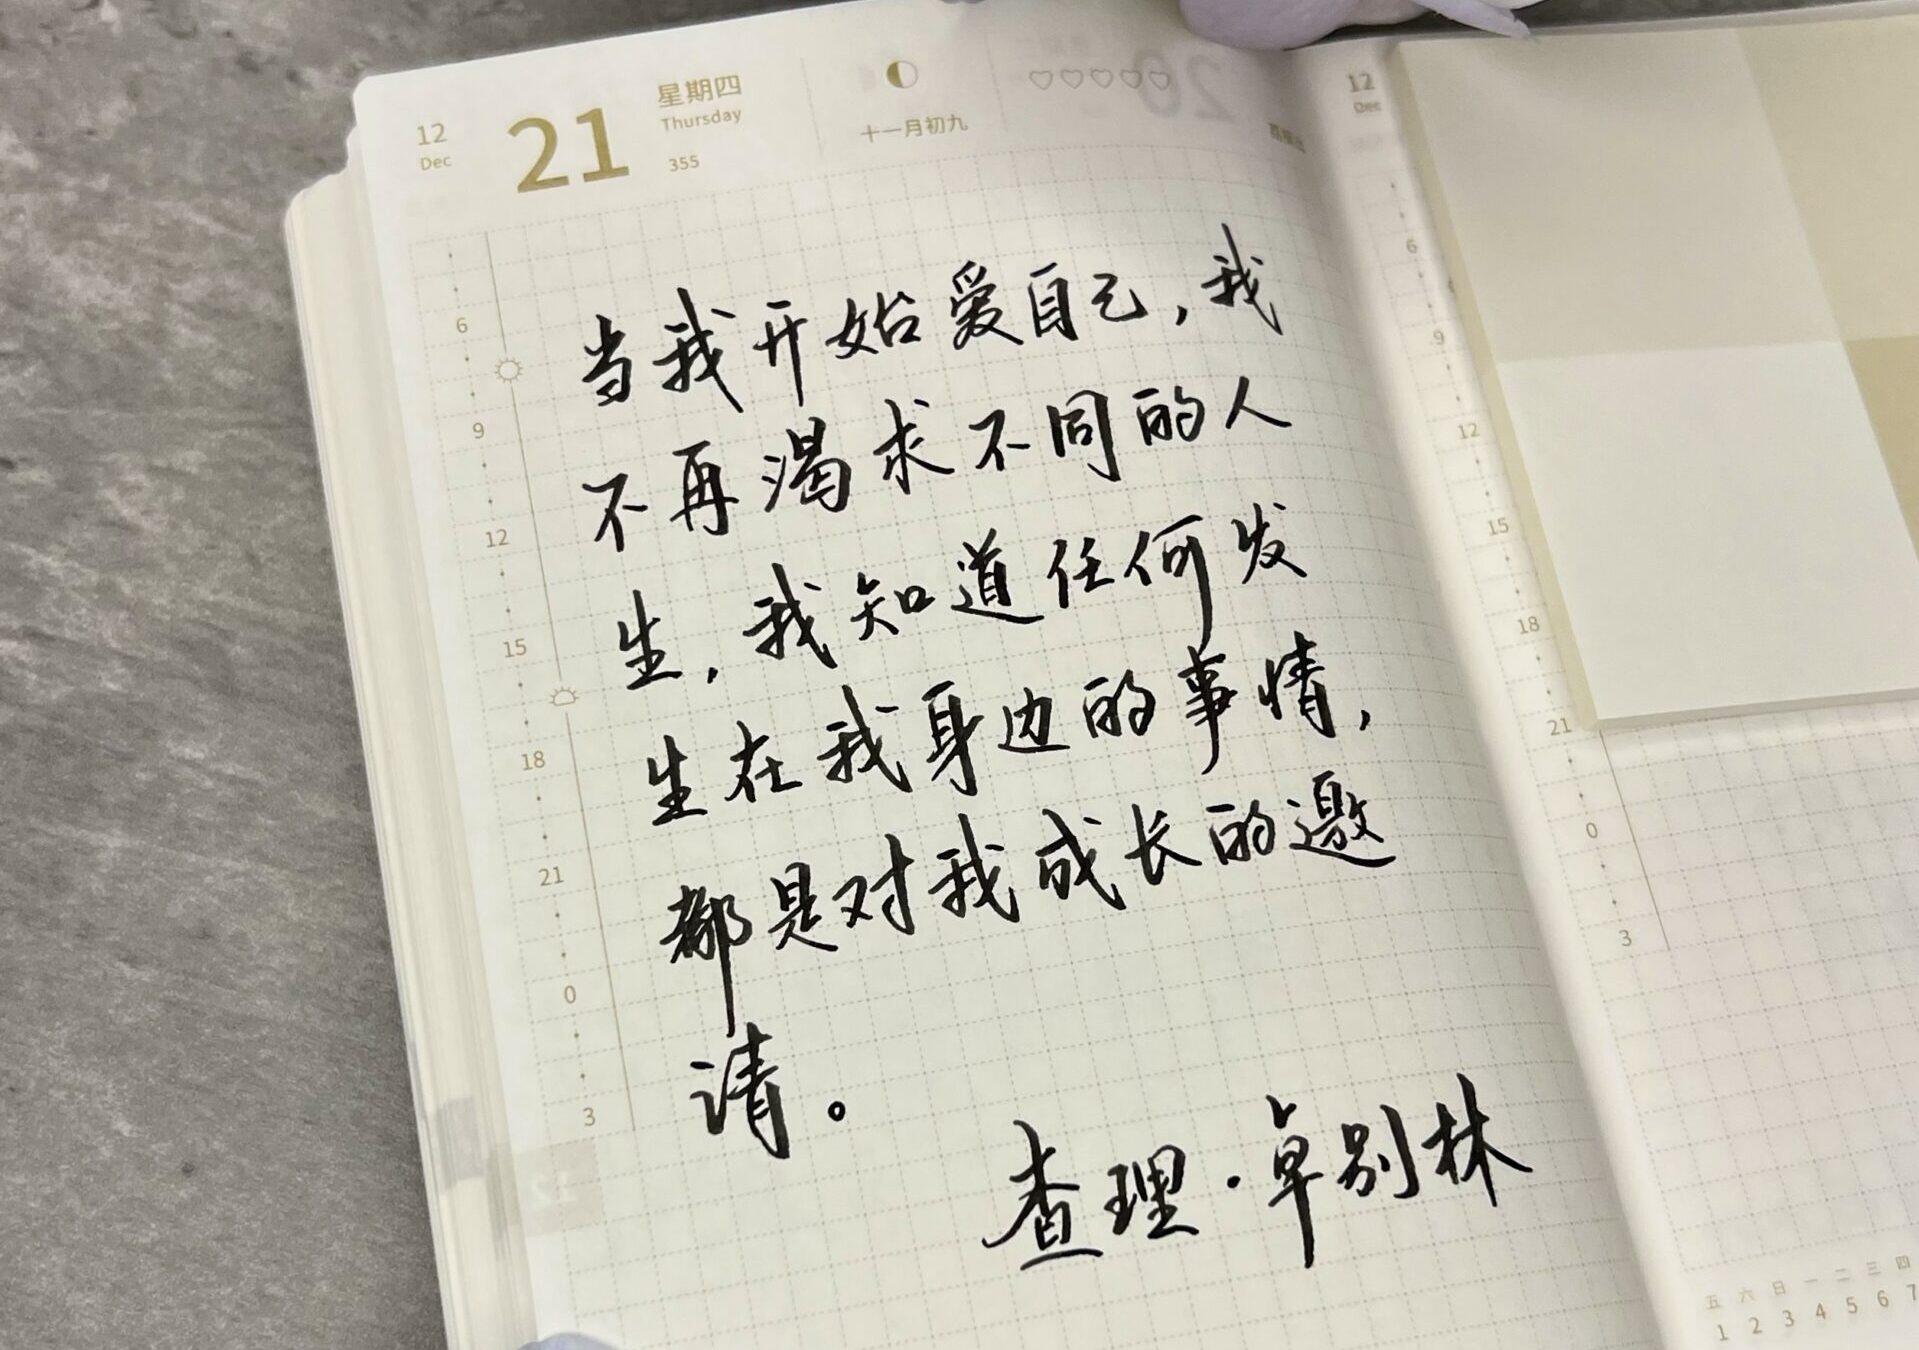 12
Dec
21
星期四
Thursday
355
十一月初九
当我开始爱自己，我
不再渴求不同的人
生，我知道任何发
生在我身边的事情，
都是对我成长的邀
请。
查理·卓别林
6
9
12
15
18
21
0
3
12
Dec
6
9
12
15
18
21
0
3
五 六 日 一 二 三 四
1 2 3 4 5 6 7